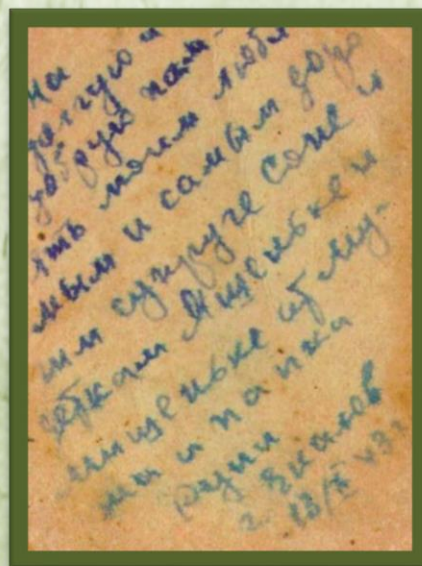 на
долгую и
добрую пам-
ять моим люби
мым и самым доро
им супруге Соне и
деткам Яшеньке и
мишеньке от му-
жа и папки
г. Чкалов
13/X 43г